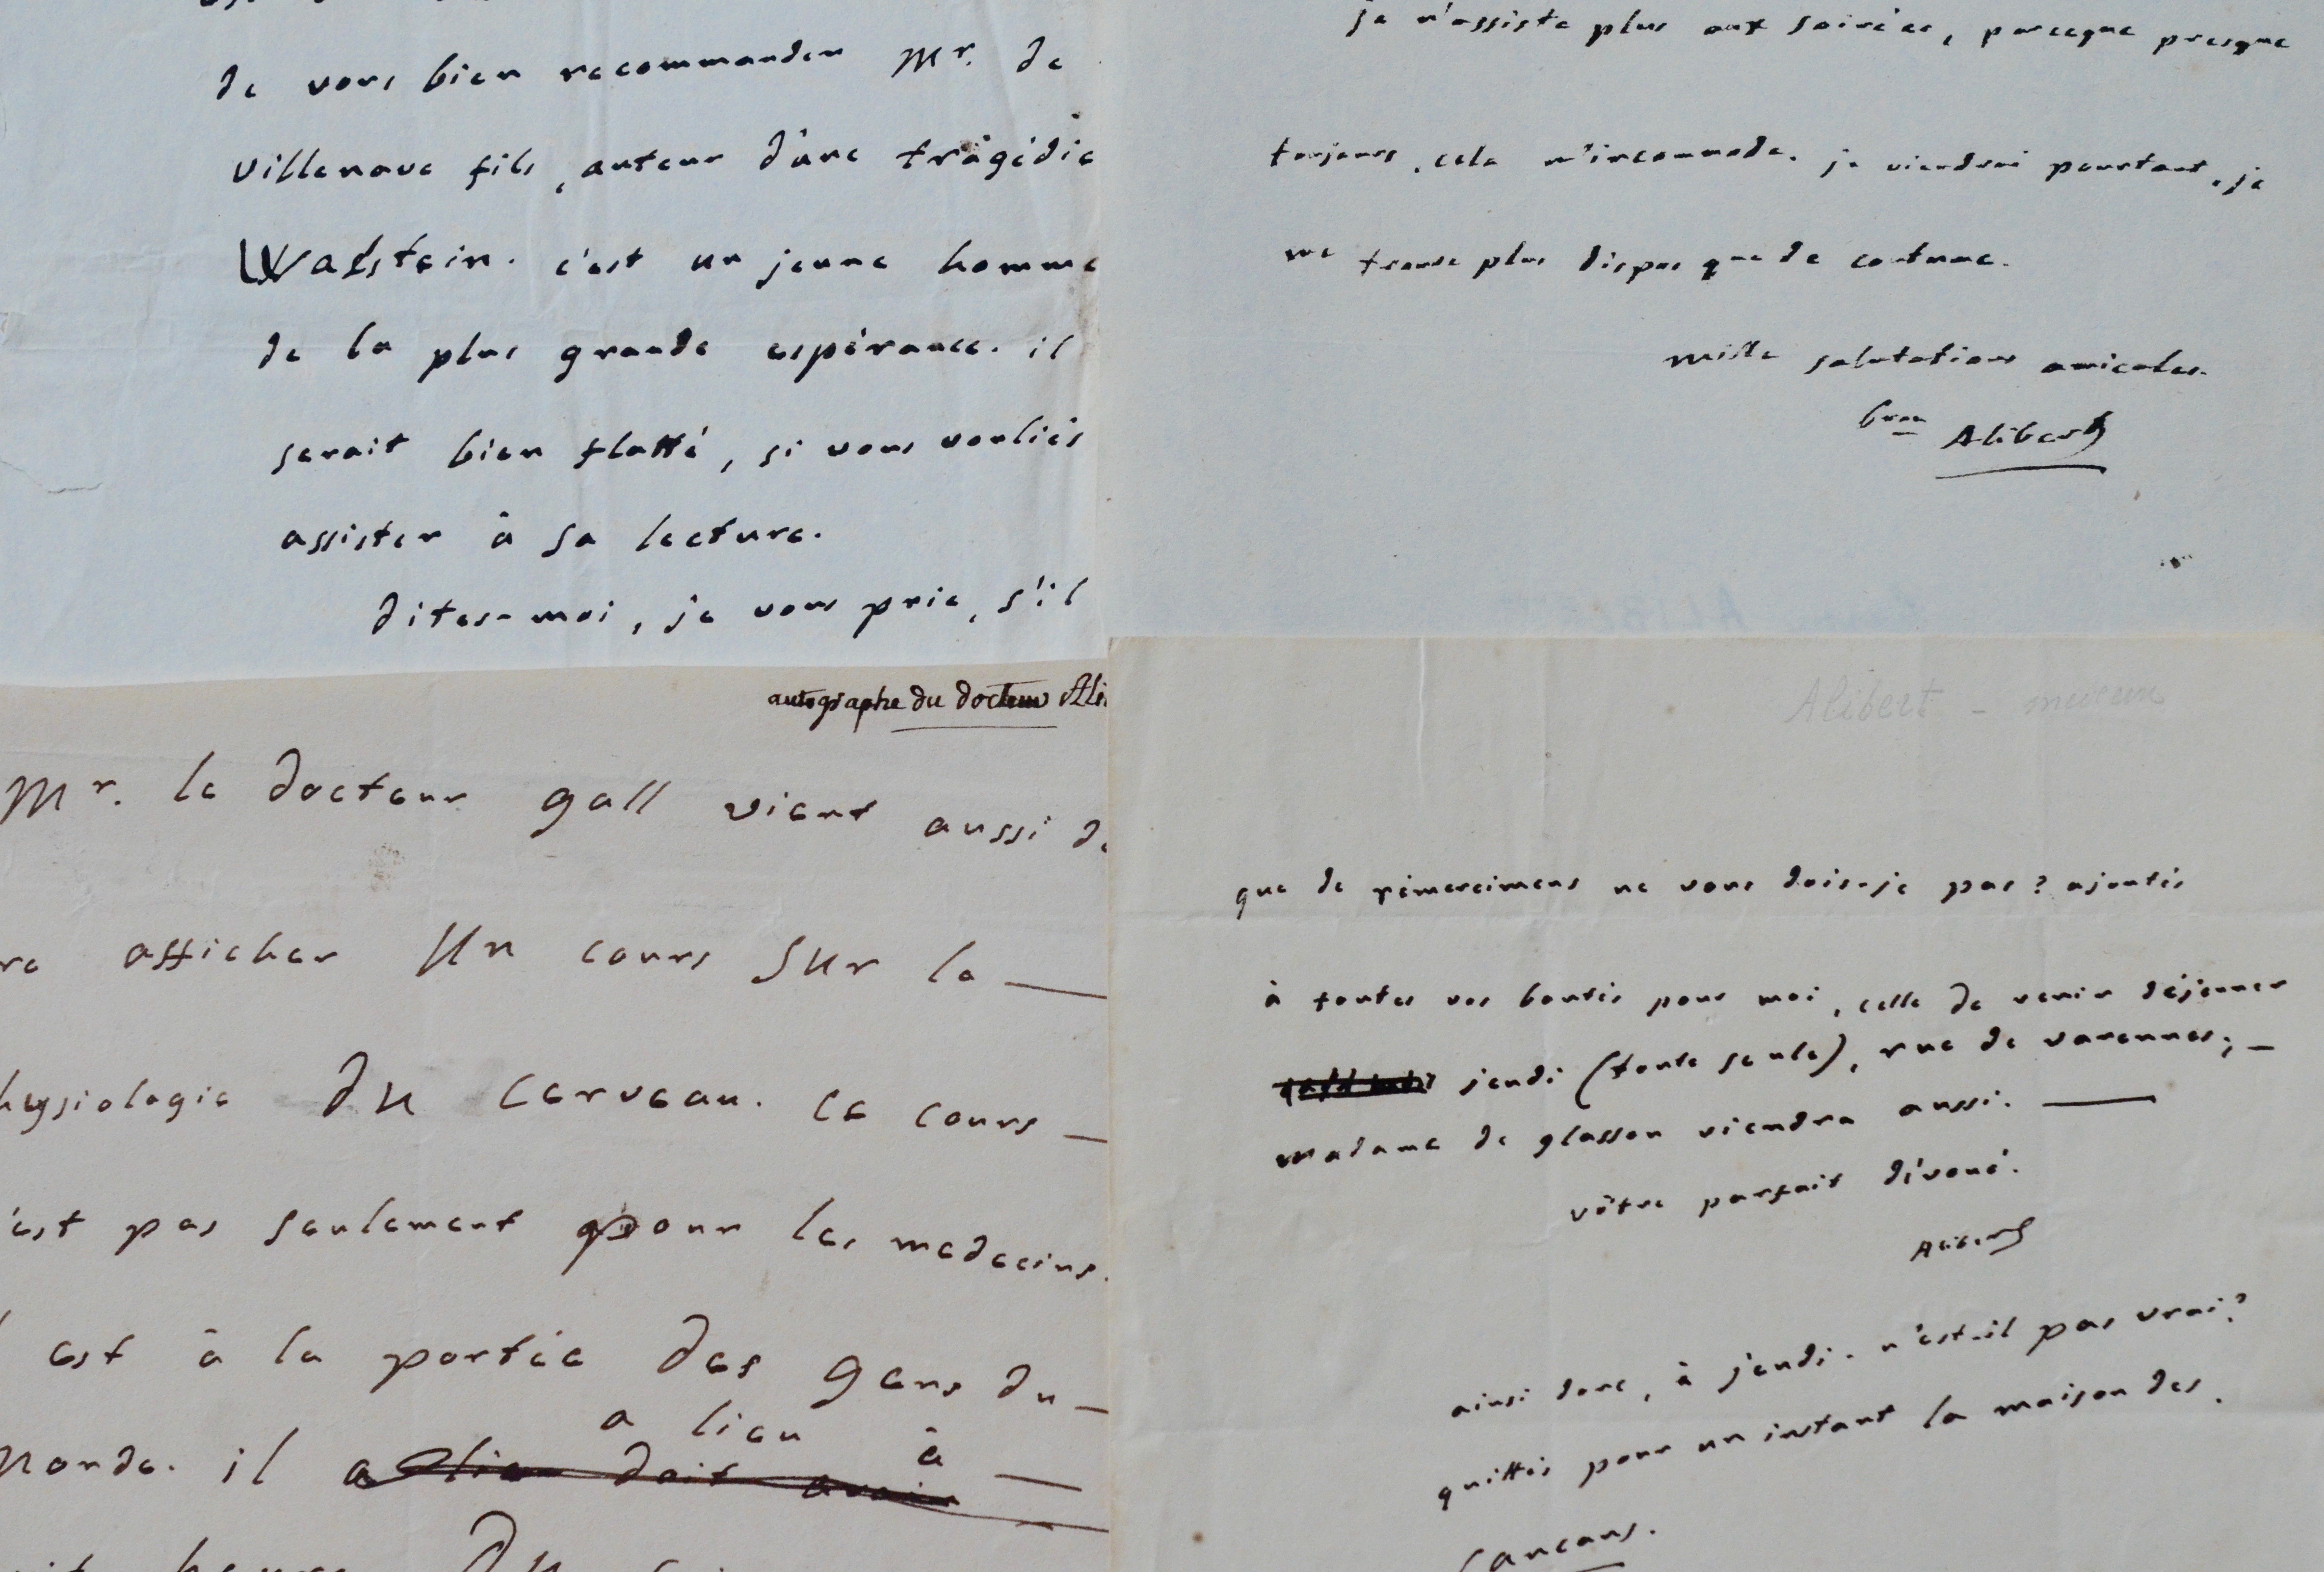 de vous bien recommander Mr. de
villenave fils, auteur d'une tragédie
Walstein. c'est un jeune homme
de la plus grande espérance. il
serait bien flatté, si vous vouliés
assister à sa lecture.
dites-moi, je vous prie, s'il
je n'assiste plus aux soirées, parceque presque
toujours, cela m'incommode. je viendrai pourtant, je
me trouve plus dispos que de coutume.
mille salutations amicales.
bron Alibert
autographe du docteur Ali
Mr. le docteur gall vient aussi de
re afficher un cours sur la
hysiologie du cerveau. ce cours
'est pas seulement pour les medecins.
est à la portée des gens du
monde. il a lieu doit avoir
a lieu à
heure du
Alibert - medecin
que de rémercimens ne vous dois-je pas? ajoutés
à toutes vos bontés pour moi, celle de venir déjeuner
jeudi (toute seule), rue de varennes;
madame de glasson viendra aussi.
vôtre parfait dévoué.
Alibert
ainsi donc, à jeudi. n'est-il pas vrai?
quittés pour un instant la maison des
Cancans.